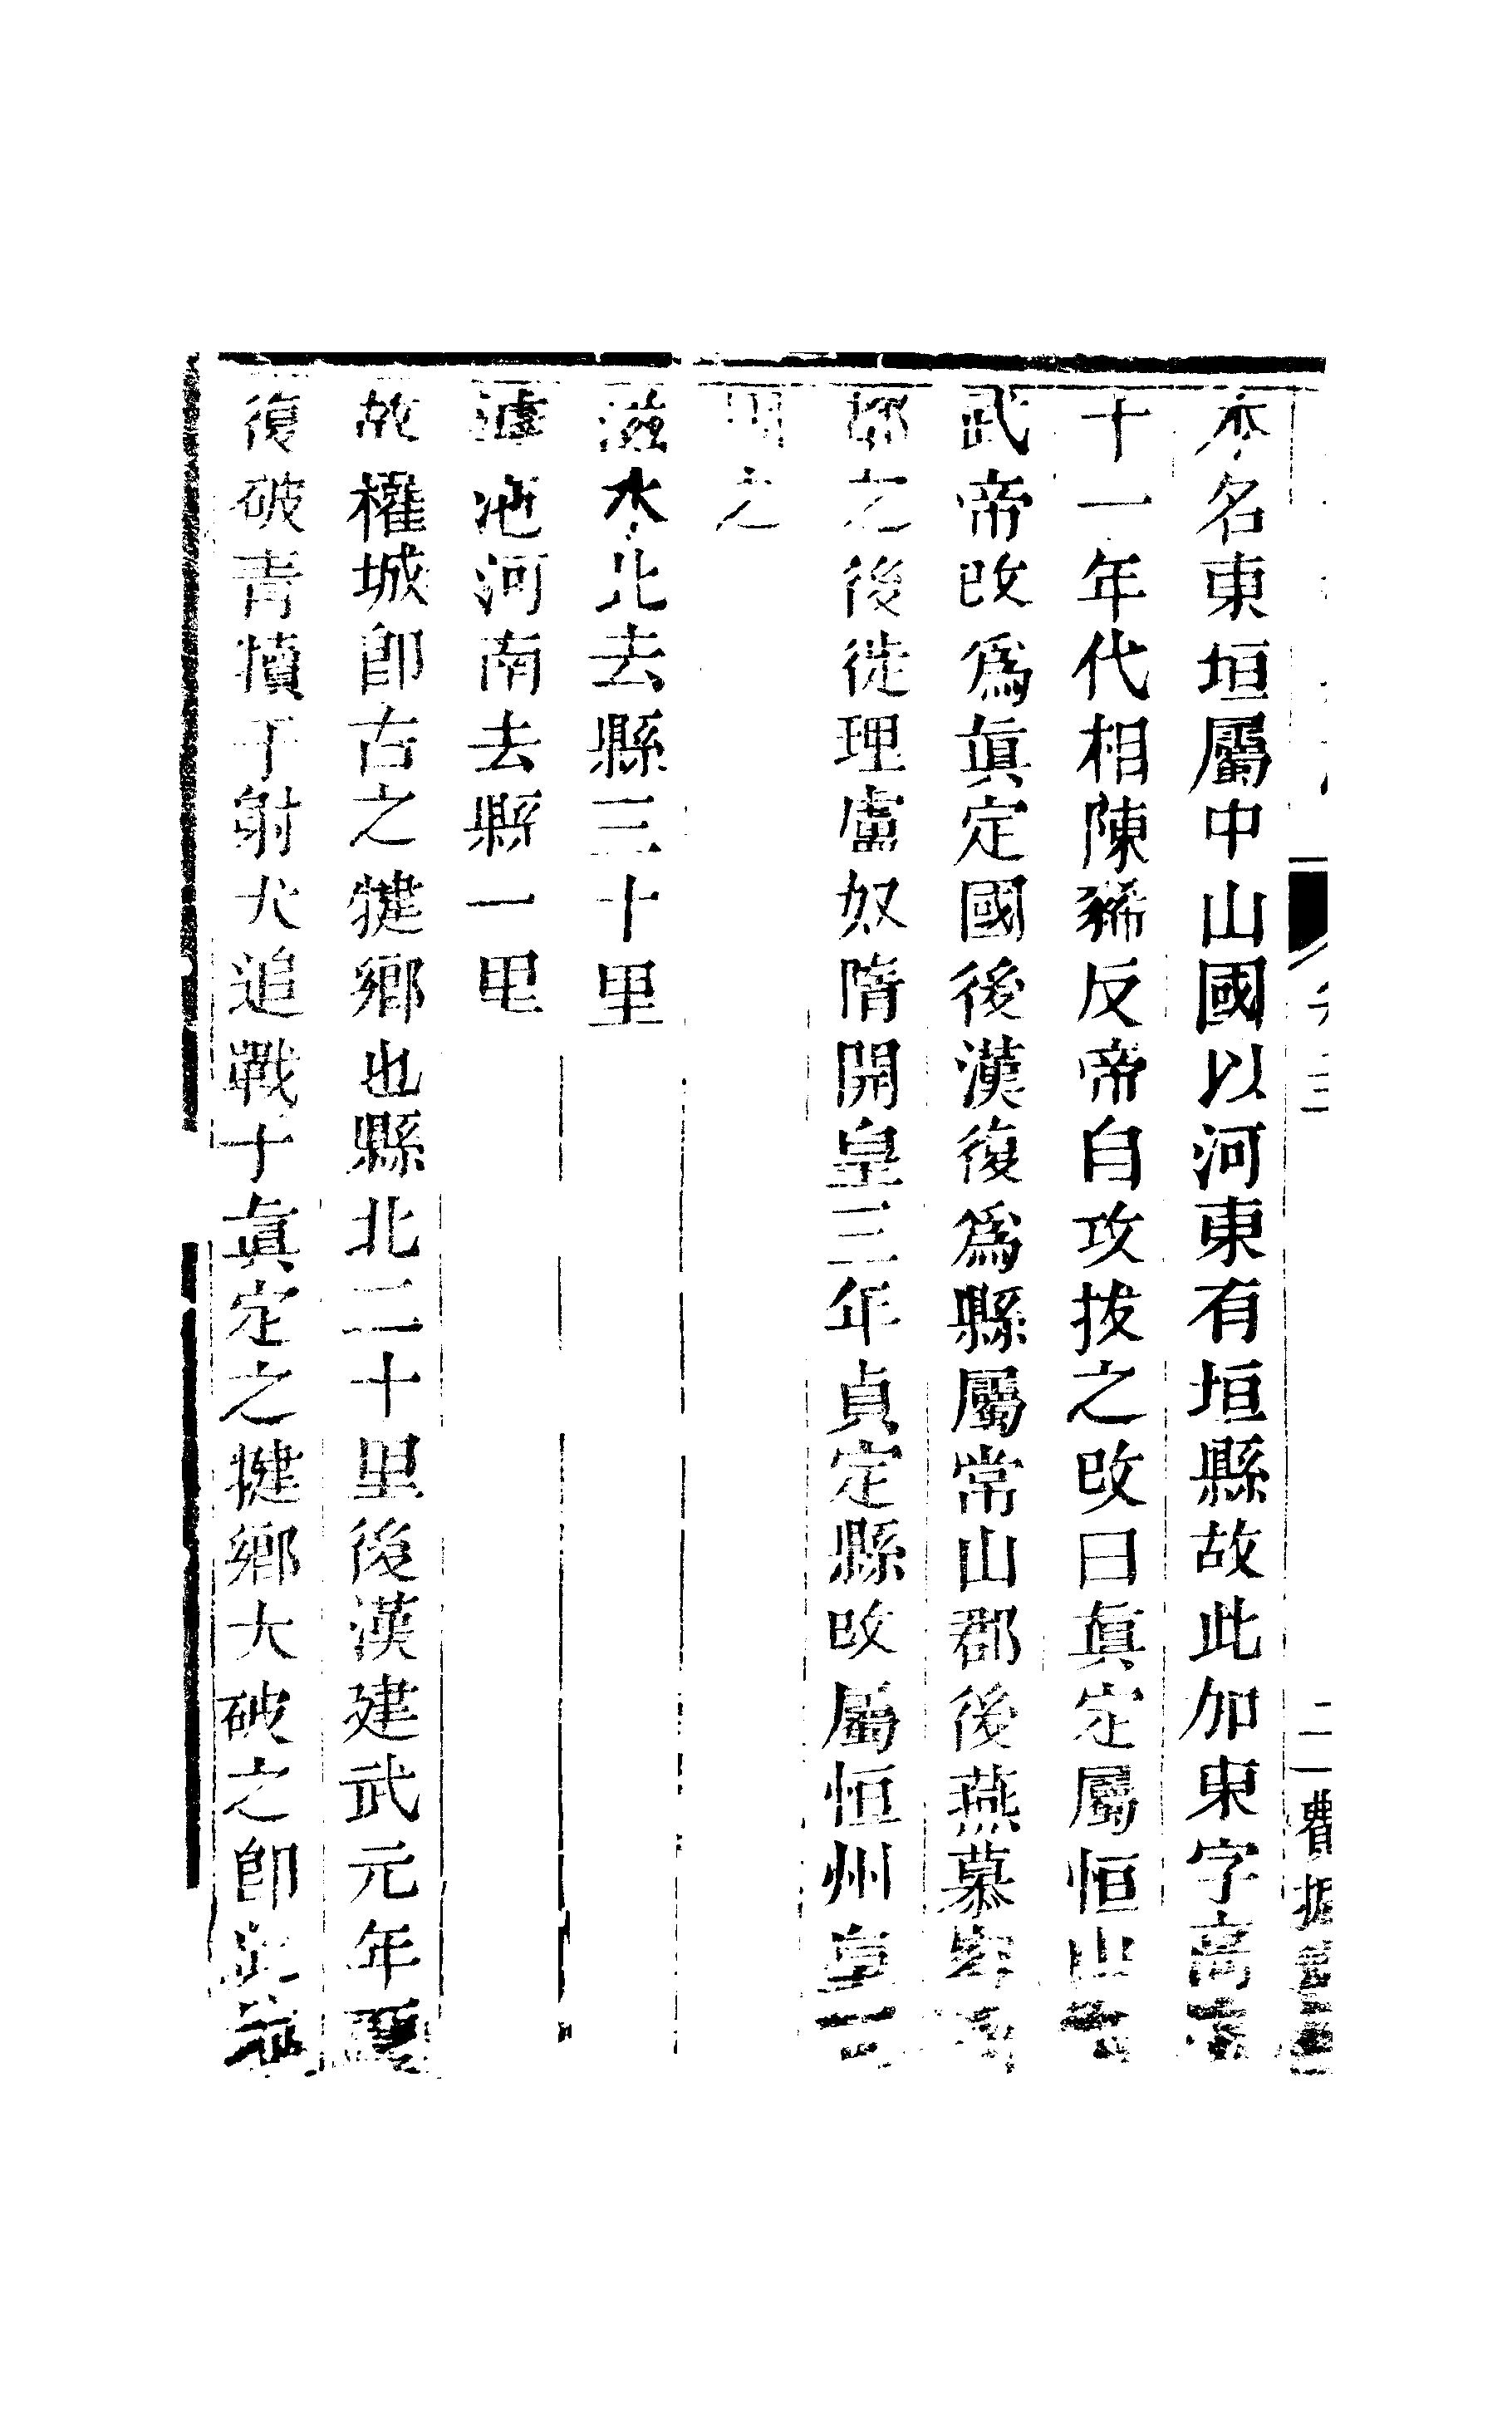 本名東垣屬中山國以河東有垣縣故此加東字高
十一年代相陳豨反帝自攻拔之改曰眞定屬恒山
武帝改爲眞定國後漢復爲縣屬常山郡後燕慕容
鄴之後徙理盧奴隋開皇三年貞定縣改屬恒州皇
因之
滋水北去縣三十里
滹沱河南去縣一里
故權城卽古之犍鄉也縣北二十里後漢建武元年賈
復破靑犢于射犬追戰于眞定之犍鄉大破之卽此
卷三
二